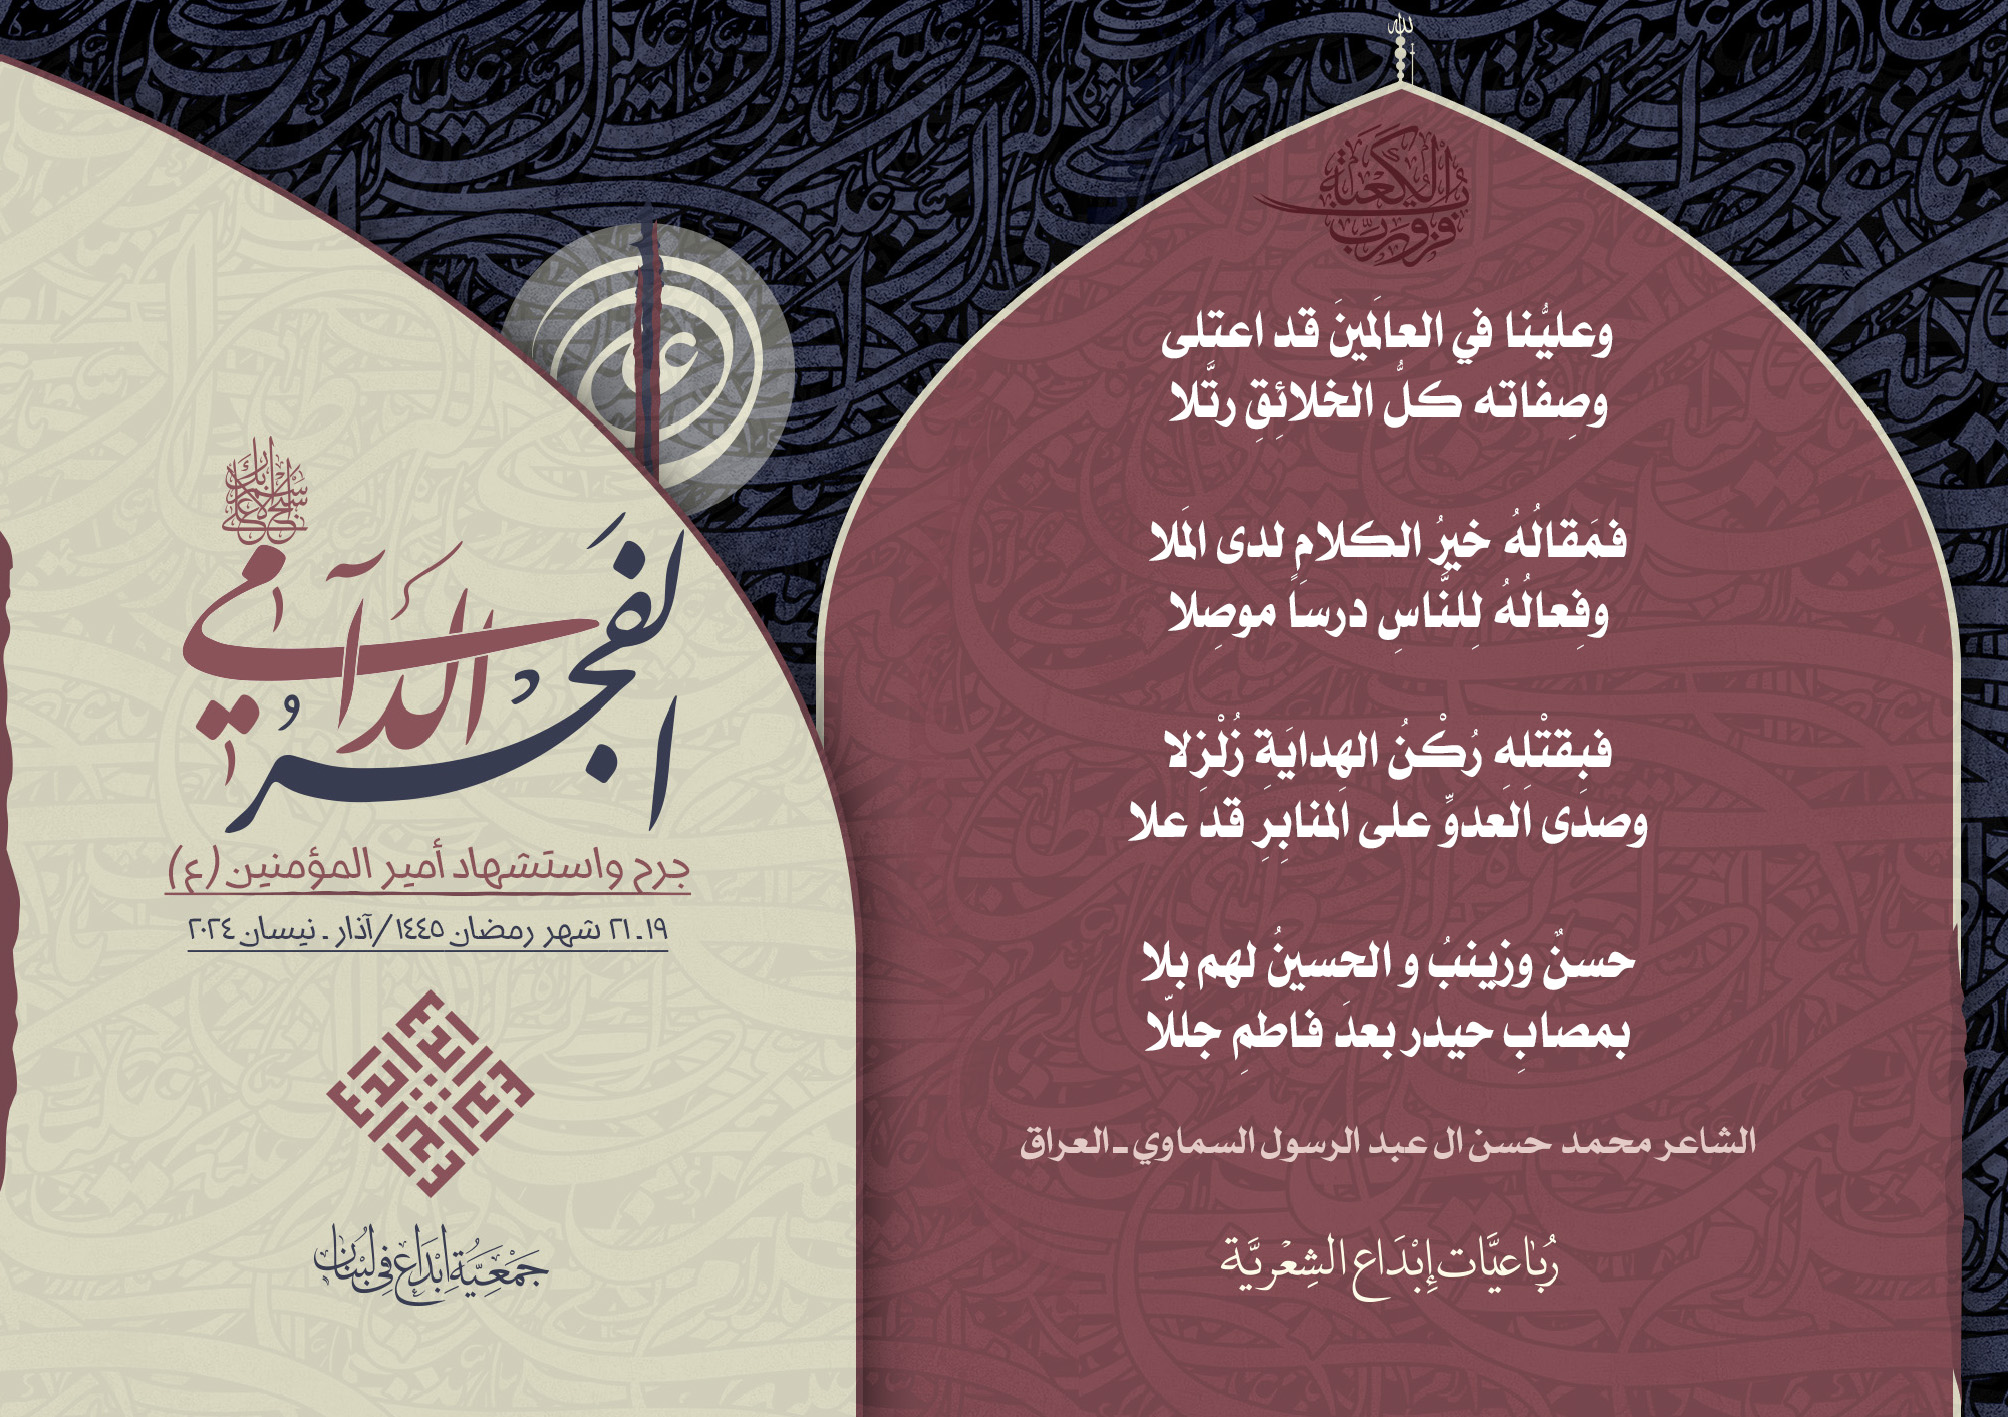 لله
فزت ورب الكعبة
وعليُّنا في العالَمينَ قد اعتلى
وصِفاته كلُّ الخلائِقِ رتَّلا
فمَقالُهُ خيرُ الكلامِ لدى المَلا
وفِعالُهُ لِلنَّاسِ درساً موصِلا
فبِقتْلِهِ رُكْنُ الهِدايَةِ زُلْزِلا
وصدى العِدوِّ على المنابِرِ قد علا
حسنٌ وزينبُ و الحسينُ لهم بلا
بمصابِ حيدر بعدَ فاطمِ جللّا
الشاعر محمد حسن ال عبد الرسول السماوي ـ العراق
رُبَاعيَّات إِبْدَاع الشِعْريَّة
علي
سبح اسم ربك الأعلى
الفَجرُ الدَّامي
جرح واستشهاد أمير المؤمنين (ع)
١٩ـ ٢١ شهر رمضان ١٤٤٥ /آذار ـ نيسان ٢٠٢٤
جَمْعِيَّةُ إِبْدَاع في لُبْنَان